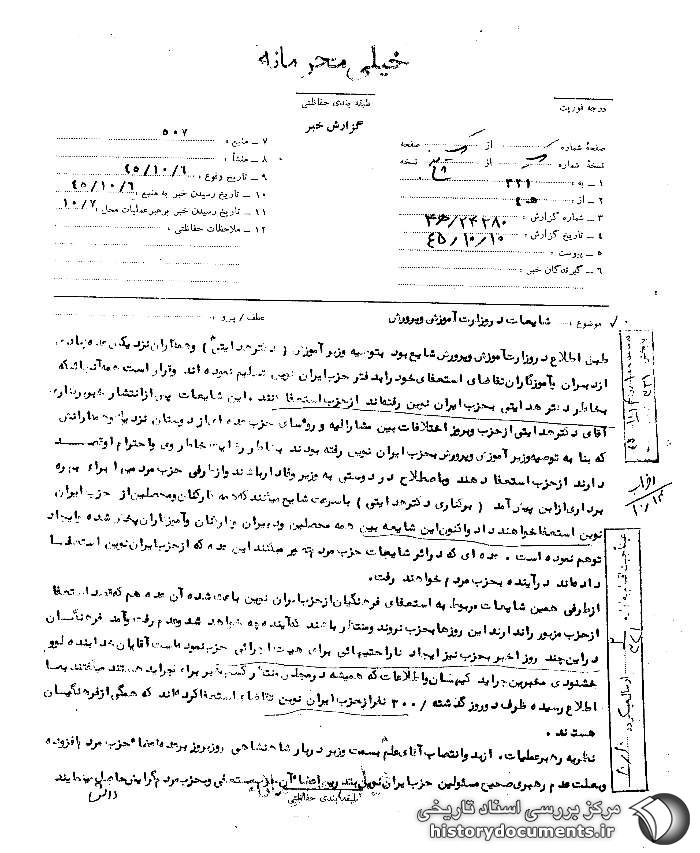 خیلی محرمانه
طبقه بندی حفاظتی
درجه فوریت
گزارش خبر
صفحهٔ شماره از صفحه
نسخهٔ شماره از نسخه
۱ – به : ۳۲۱
۲ – از :
۳ – شماره گزارش :
۴ – تاریخ گزارش : ۴۵/۱۰/۱۰
۵ – پیوست :
۶ – گیرندگان خبر :
۷ – منبع : ۵۰۷
۸ – منشأ :
۹ – تاریخ وقوع : ۴۵/۱۰/۶
۱۰ – تاریخ رسیدن خبر به منبع : ۴۵/۱۰/۶
۱۱ – تاریخ رسیدن خبر برهبر عملیات محل : ۱۰/۷
۱۲ – ملاحظات حفاظتی :
موضوع : شایعات در وزارت آموزش وپرورش
عطف / پیرو :
طبق اطلاع در وزارت آموزش وپرورش شایع بود بتوصیه وزیر آموزش ( دکتر هدایتی ) وهمکاران نزدیکش عده زیادی
از دبیران یا آموزگاران تقاضای استعفای خود را بدفتر حزب ایران نوین تسلیم نموده اند وقرار است همه آنهائیکه
بخاطر دکتر هدایتی بحزب ایران نوین رفته اند از حزب استعفا کنند . این شایعات پس از انتشار خبر برکناری
آقای دکتر هدایتی از حزب وبروز اختلافات بین مشارالیه و روسای حزب عده ای از دوستان نزدیک وهمکارانش
که بنا به توصیه وزیر آموزش وپرورش بحزب ایران نوین رفته بودند بخاطر رضایت خاطر وی واحترام اوقصد
دارند از حزب استعفا دهند وباصطلاح در دوستی به وزیر وفادار باشند واز طرفی حزب مردمیها برای بهره
برداری از این پیش آمد ( برکناری دکتر هدایتی ) با سرعت شایع میکنند که همه فارکنان ومحصلین از حزب ایران
نوین استعفا خواهند داد واکنون این شایعه بین همه محصلین ودبیران وکارکنان وآموزگاران پخش شده وایجاد
توهم نموده است . عده ای که در اثر شایعات حزب مردم فکر میکنند این عده که از حزب ایران نوین استعفا
داده اند در آینده بحزب مردم خواهند رفت .
از طرفی همین شایعات مربوط به استعفای فرهنگیان از حزب ایران نوین باعث شده آن عده هم که قصد استعفا
از حزب مزبور را ندارند این روزها بحزب نروند ومنتظر باشند که آینده چه خواهد شد وعدم رفت وآمد فرهنگیان
در این چند روز اخیر بحزب نیز ایجاد ناراحتیهائی برای هیئت اجرائی حزب نموده است آقایان خدابنده لوو
خشنودی مخبرین جراید کیهان واطلاعات که همیشه در مجلس منتظر کسب خبر برای جراید هستند میگفتند بما
اطلاع رسیده ظرف دو روز گذشته / ۳۰۰ نفر از حزب ایران نوین تقاضای استعفا کرده اند که همگی از فرهنگیان
هستند .
نظریه رهبر عملیات . از بدو انتصاب آقای علم بسمت وزیر دربار شاهنشاهی روز بروز برعده اعضا حزب مردم افزوده
وبعلت عدم رهبری صحیح مسئولین حزب ایران نوین بتدریج اعضا آن حزب مستعفی وبحزب مردم گرایش حاصل مینمایند
طبقه بندی حفاظتی
مرکز بررسی اسناد تاریخی
historydocuments.ir